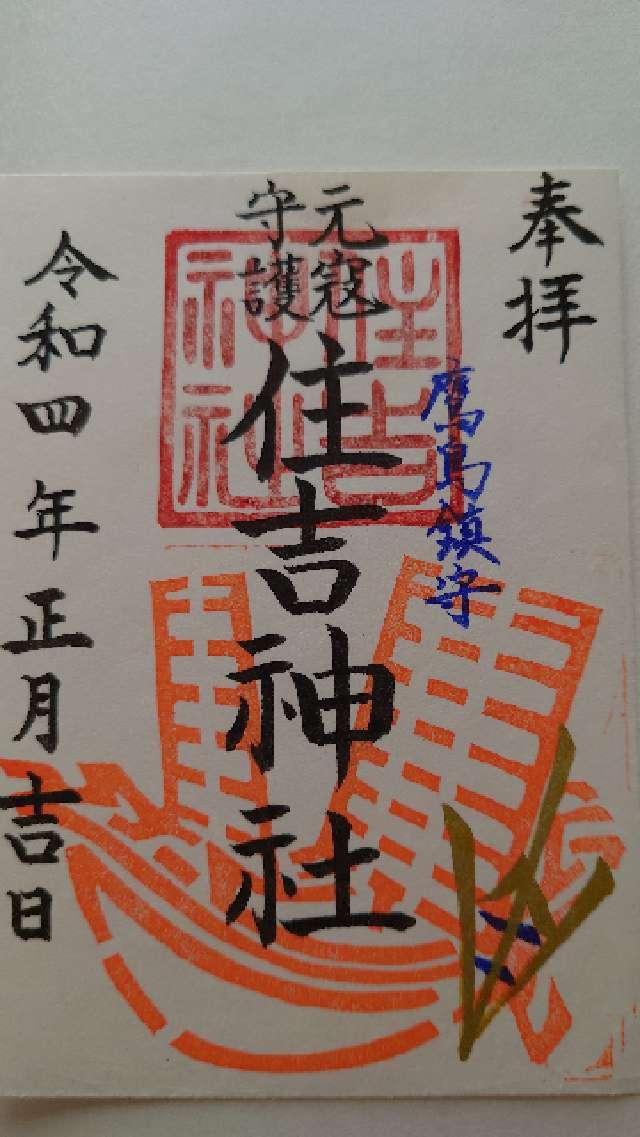 奉拝
鷹島鎮守
元寇
守護
住吉神社
住吉
神社
令和四年正月吉日